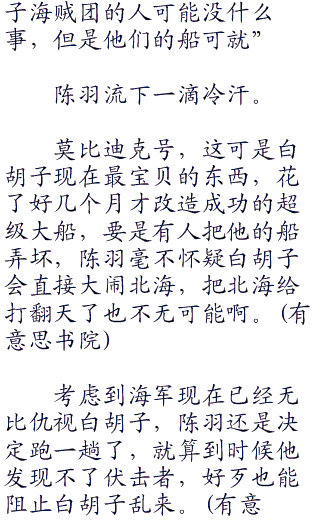 子海贼团的人可能没什么
事，但是他们的船可就”
陈羽流下一滴冷汗。
莫比迪克号，这可是白
胡子现在最宝贝的东西，花
了好几个月才改造成功的超
级大船，要是有人把他的船
弄坏，陈羽毫不怀疑白胡子
会直接大闹北海，把北海给
打翻天了也不无可能啊。（有
意思书院）
考虑到海军现在已经无
比仇视白胡子，陈羽还是决
定跑一趟了，就算到时候他
发现不了伏击者，好歹也能
阻止白胡子乱来。（有意